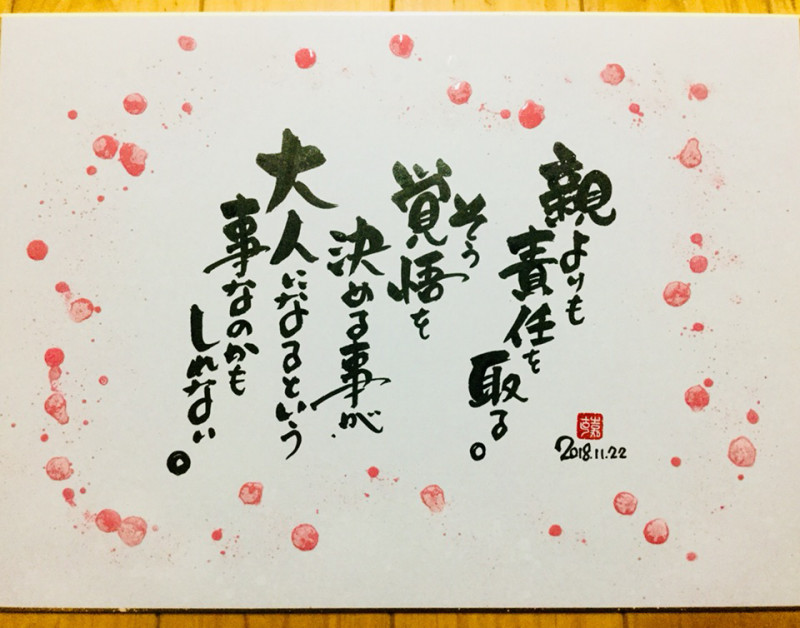 親よりも
責任を
取る。
そう
覚悟を
決める事が
大人になるという
事なのかも
しれない。
2018.11.22